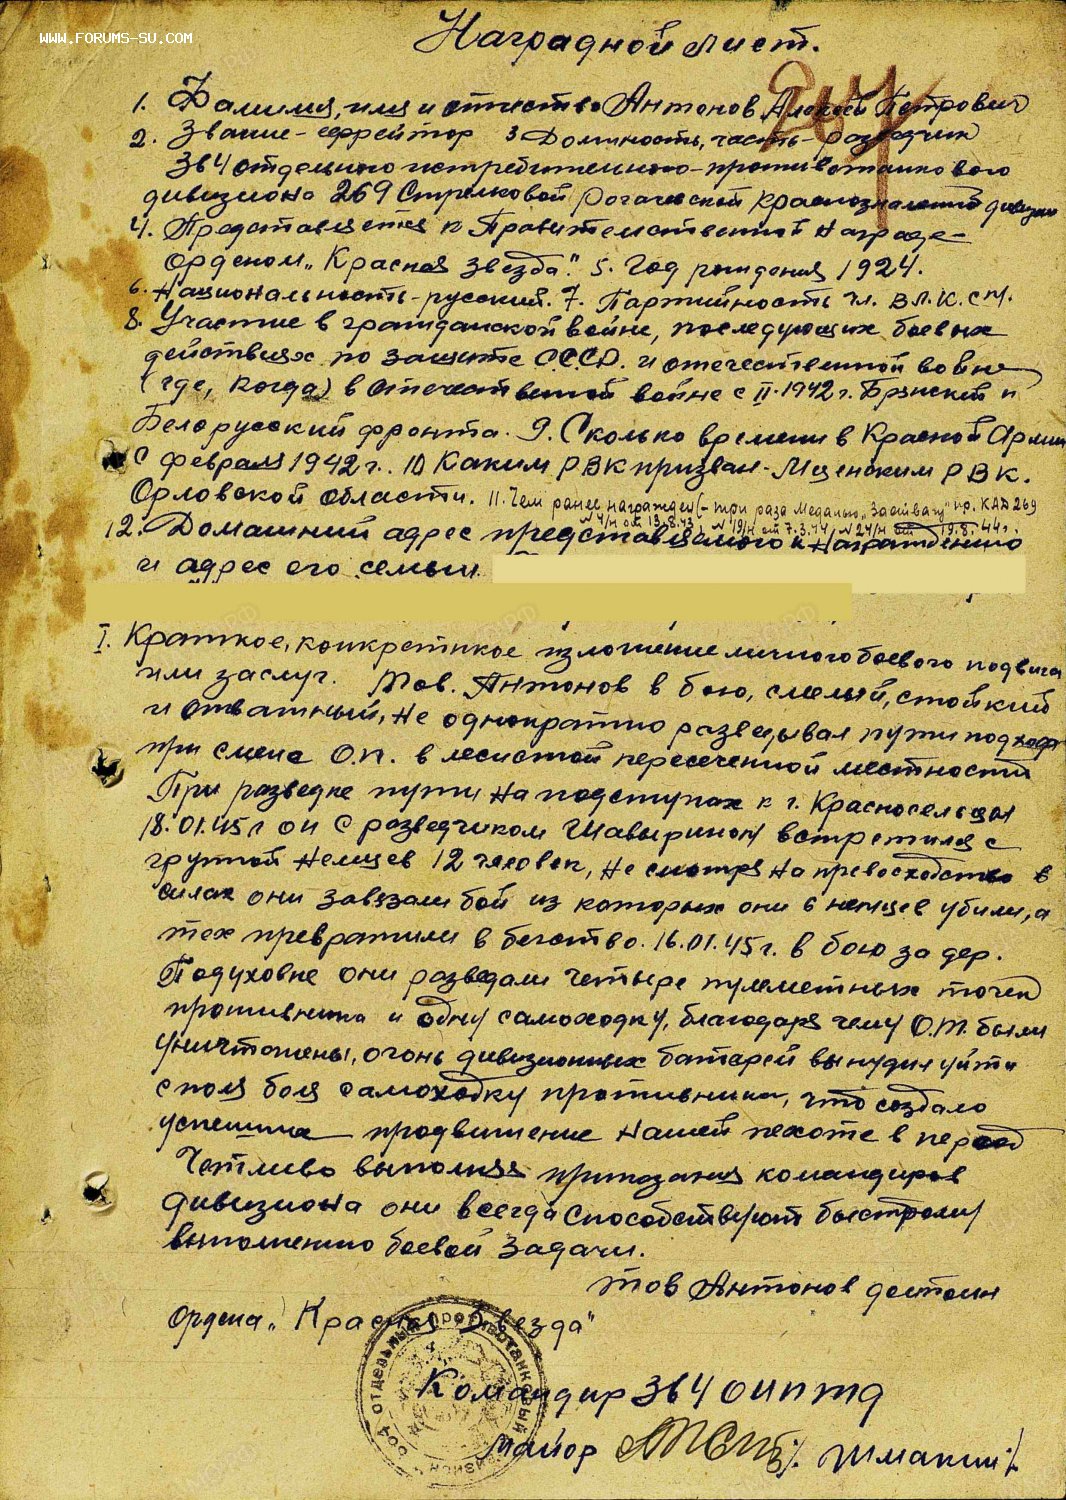 WWW.FORUMS-SU.COM
Наградной лист.
1. Фамилия, имя и отчество Антонов Алексей Петрович
2. Звание - ефрейтор 3 Должность, часть - разведчик
364 отдельного истребительного - противотанкового
дивизиона 269 Стрелковой Рогачевской краснознаменной дивизии
4. Представляется к Правительственной награде -
орденом „Красная звезда". 5. Год рождения 1924.
6. Национальность - русский. 7. Партийность чл. В.Л.К.С.М.
8. Участие в гражданской войне, последующих боевых
действиях по защите С.С.С.Р. и отечественной войне
(где, когда) в Отечественной войне с II.1942 г. Брянский и
Белорусский фронта. 9. Сколько времени в Красной Армии
С февраля 1942 г.. 10 Каким РВК призван - Мценским РВК.
Орловской области. 11. Чем ранее награжден (- три раза медалью „За отвагу" пр. КАД 269
№ 4/н от 13.8.43, № 19/н от 7.3.44, № 24/н от 19.8.44 г.
12. Домашний адрес представляемого к награждению
и адрес его семьи
I. Краткое, конкретное изложение личного боевого подвига
или заслуг. Тов. Антонов в бою, смелый, стойкий
и отважный, не однократно разведывал пути подхода
при смене О.П. в лесистой пересеченной местности
При разведке пути на подступах к г. Красносельцы
18.01.45 г он с разведчиком Шавырином встретился с
группой немцев 12 человек, не смотря на превосходство в
силах они завязали бой из которых они 6 немцев убили, а
тех превратили в бегство. 16.01.45 г. в бою за дер.
Подуховне они разведали четыре пулеметных точек
противника и одну самоходку, благодаря чему О.Т. были
уничтожены, огонь дивизионных батарей вынудил уйти
с поля боя самоходку противника, что создало
успешное продвижение нашей пехоте в перёд
Четливо выполняя приказания командиров
дивизиона они всегда способствуют быстрому
выполнению боевой задачи.
тов Антонов достоин
ордена „Красная Звезда"
отдельный противотанковый дивизион
Командир 364 ОИПТД
Майор /Шмаким/